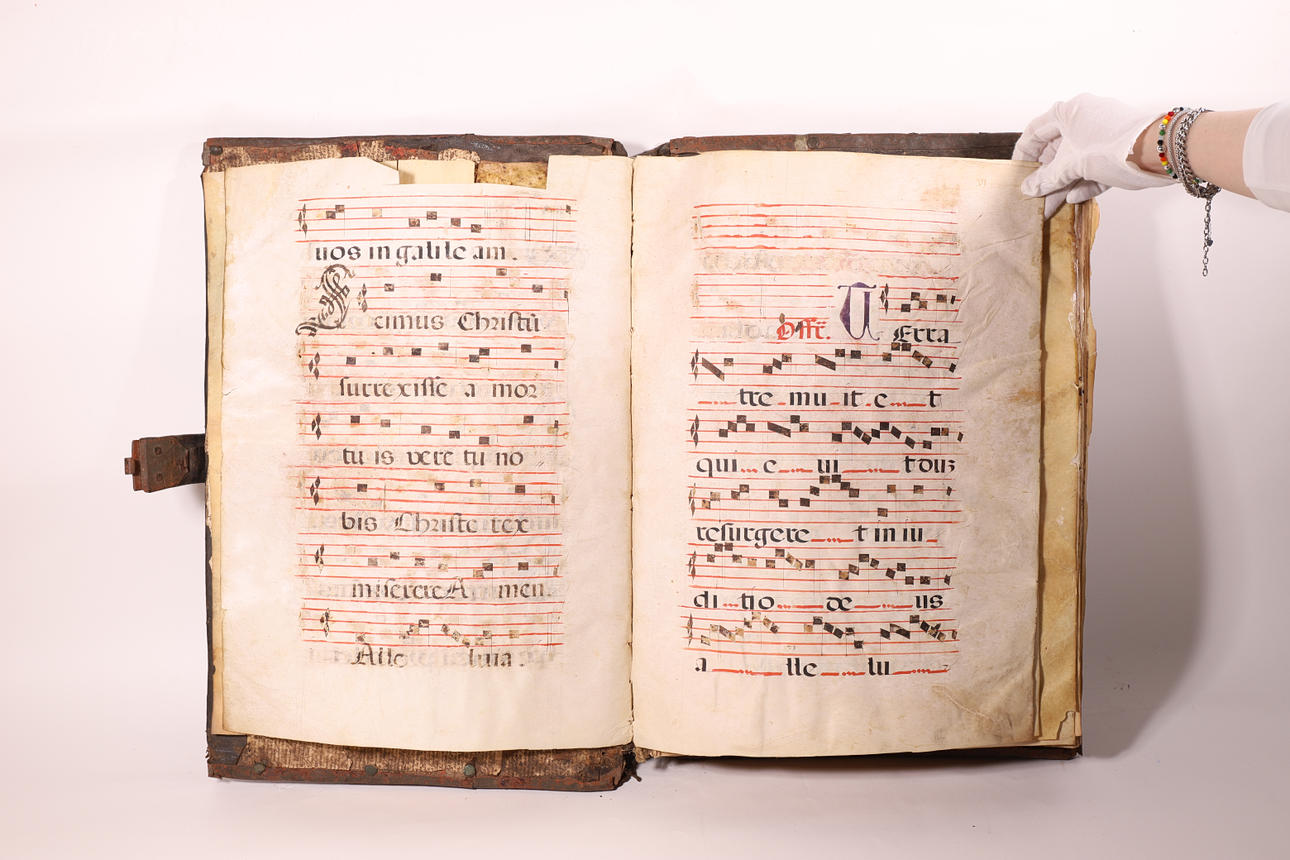 uos in galile am.
Scimus Christū
surrexisse a mor
tu is vere tu no
bis Christe rex
miserere Amen
Alle luia
Offē. T Erra
tre mu it e t
qui e ui t dūs
resurgere t in iu
di tio de us
a lle lu